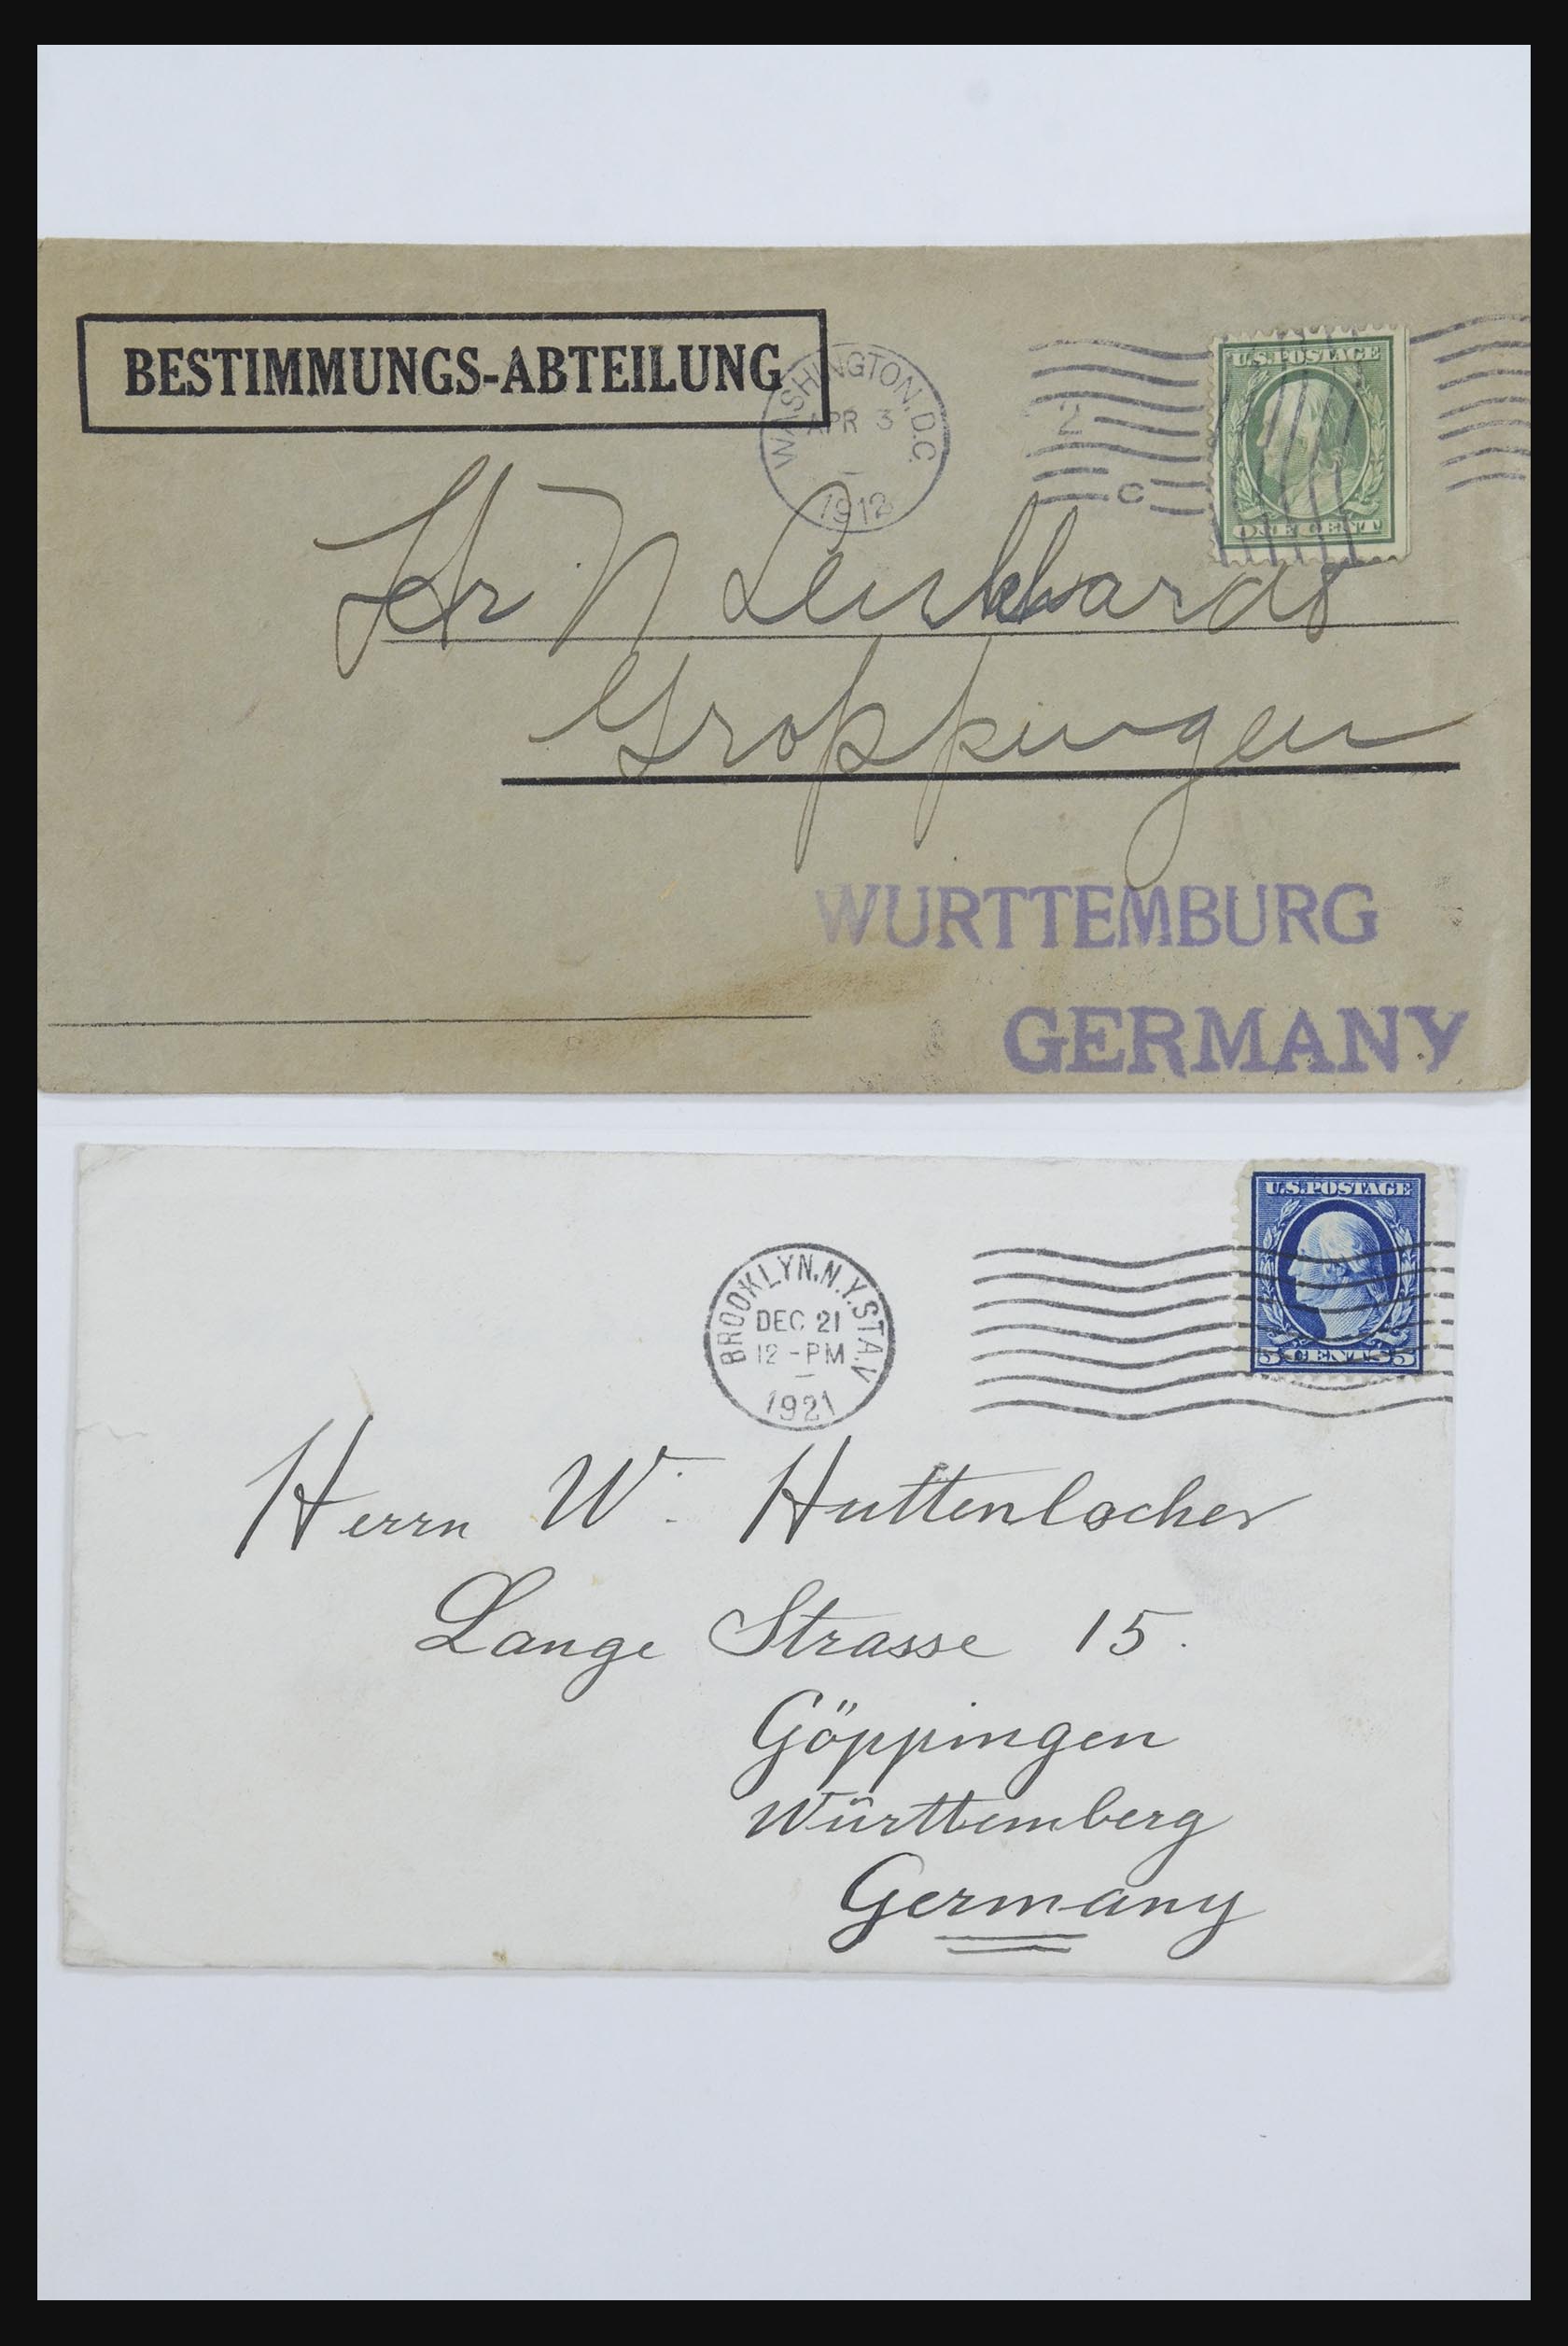 BESTIMMUNGS-ABTEILUNG
WASHINGTON, D.C.
APR 3
1912
2
C
U.S. POSTAGE
ONE CENT
Hr N Leinhhards
Groppingen
WURTTEMBURG
GERMANY
U.S. POSTAGE
5 CENTS 5
BROOKLYN, N.Y. STA. V
DEC 21
12-PM
1921
Herrn W. Huttenlocher
Lange Strasse 15.
Göppingen
Württemberg
Germany